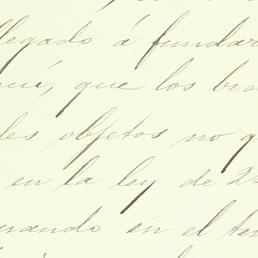 llegado á fundar
que los bie
les objetos no q
en la ley de 2
uando en el te